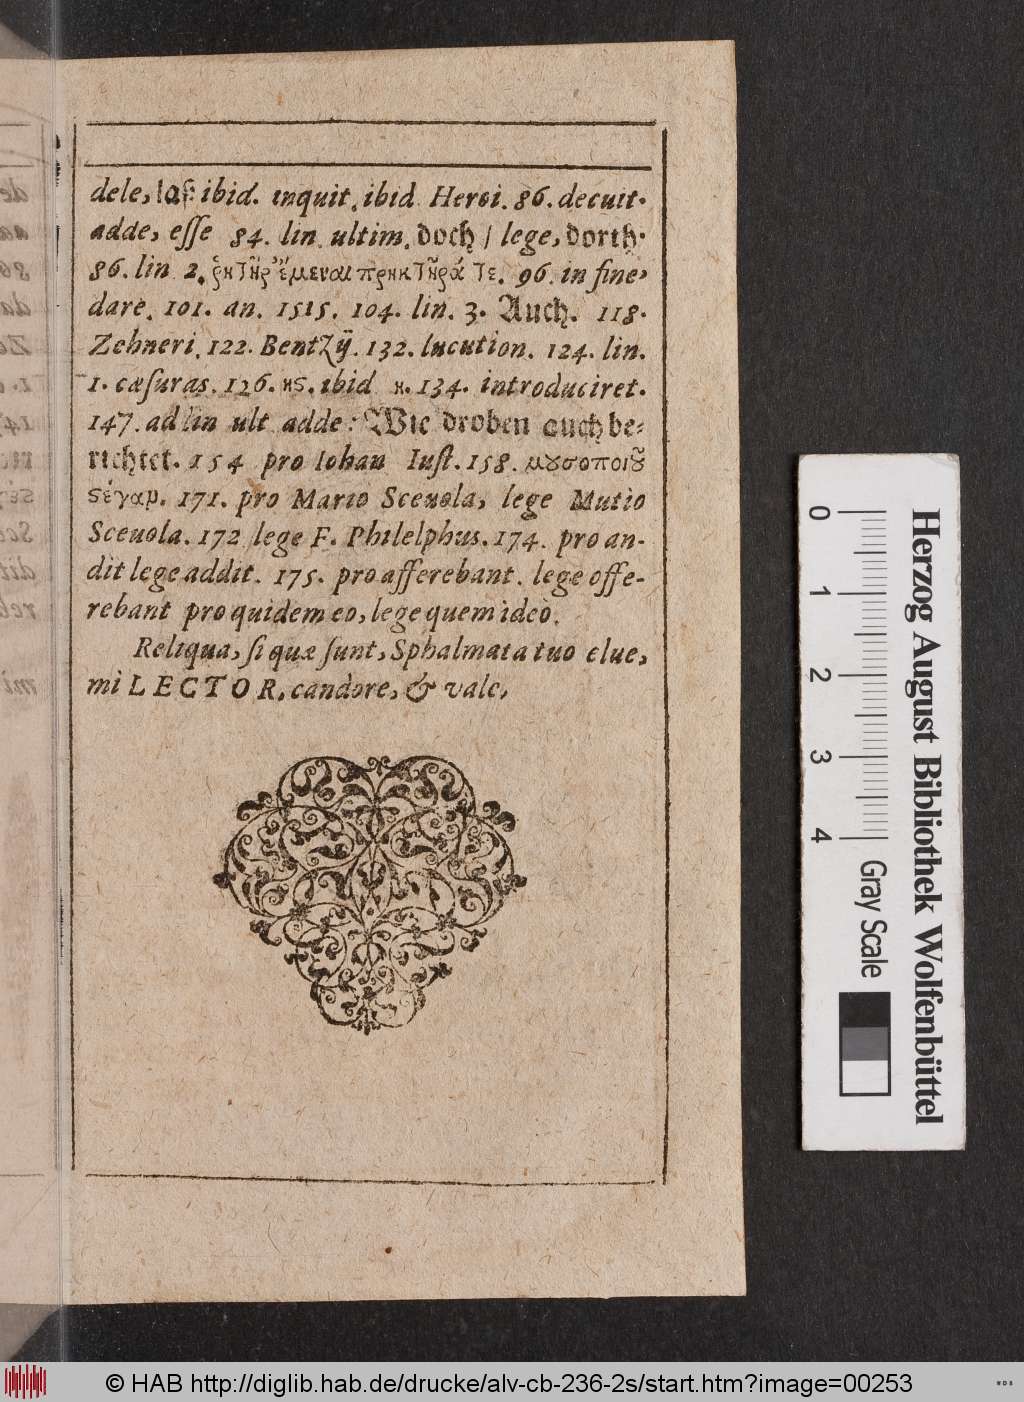 dele, laſ: ibid. inquit. ibid Heroi. 86. decuit.
adde, eſſe 84. lin. ultim. doch / lege, dorth.
86. lin 2. ῥητῆρ' ἔμεναι πρηκτῆρά τε. 96. in fine,
dare. 101. an. 1515. 104. lin. 3. Auch. 118.
Zehneri. 122. Bentzÿ. 132. lucution. 124. lin.
1. cæſuras. 126. ης. ibid η. 134. introduciret.
147. ad lin ult adde: Wie droben auch be-
richtet. 154 pro Iohan Iuſt. 158. μȣσοποιȣ͂
ϛέγαρ. 171. pro Mario Scevola, lege Mutio
Scevola. 172 lege F. Philelphus. 174. pro an-
dit lege addit. 175. pro afferebant. lege offe-
rebant pro quidem eo, lege quem ideò.
Reliqua, ſi quæ ſunt, Sphalmata tuo elue,
mi LECTOR, candore, & vale,
0 1 2 3 4
Gray Scale
Herzog August Bibliothek Wolfenbüttel
© HAB http://diglib.hab.de/drucke/alv-cb-236-2s/start.htm?image=00253